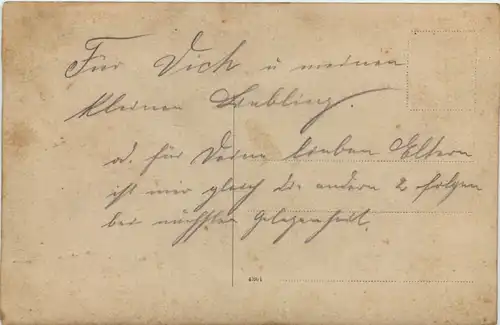 Für Dich u meinen
kleinen Liebling.
od. für Deine lieben Eltern
ist mir gleich die andern 2 folgen
bei nächster Gelegenheit.